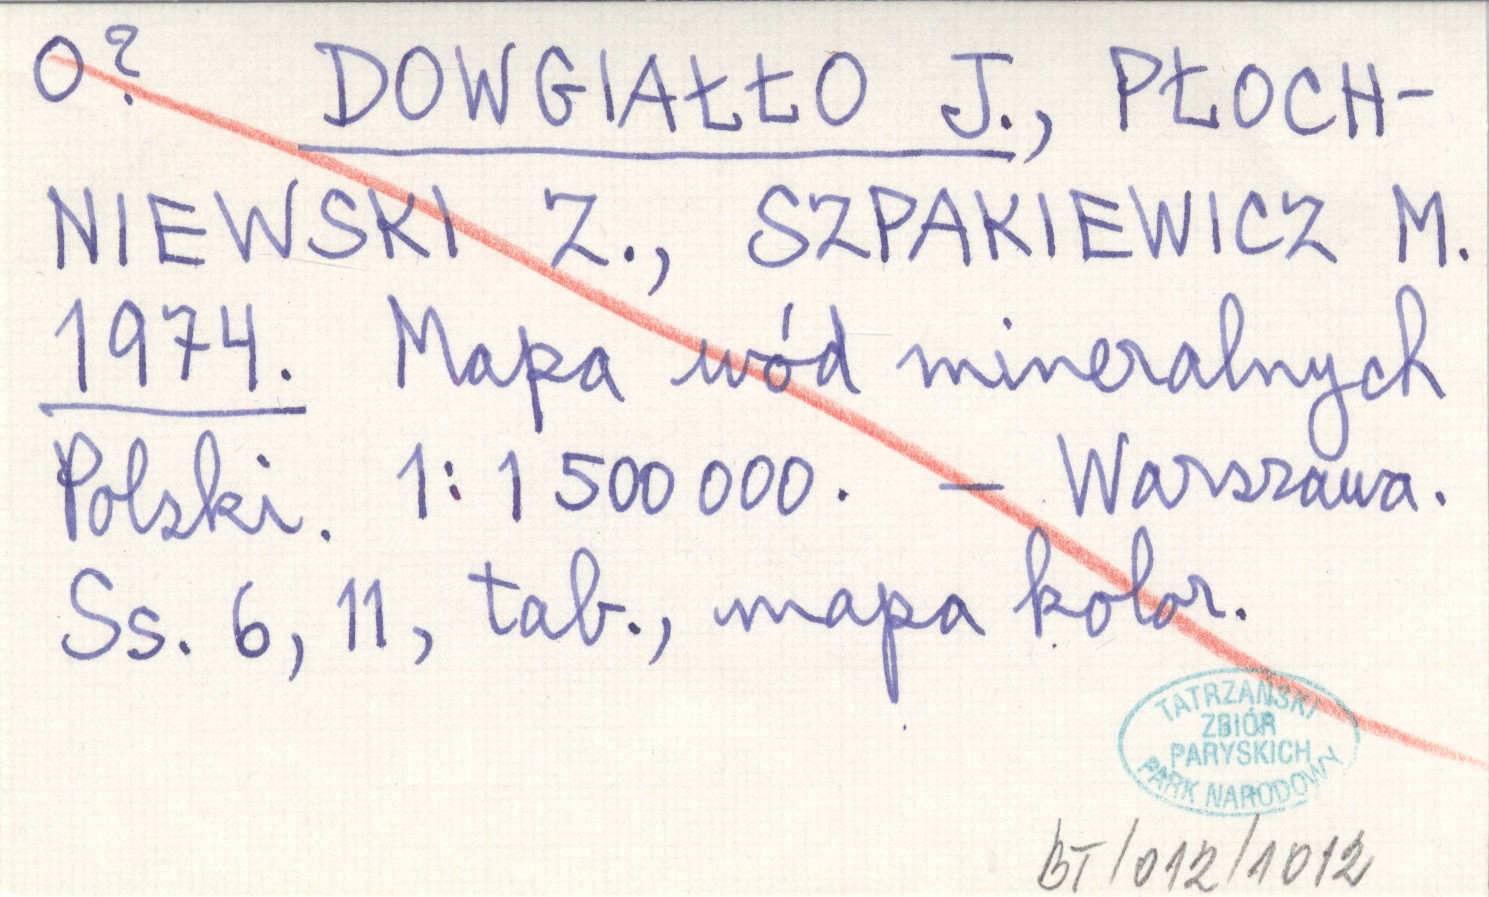 O? DOWGIAŁŁO J., PŁOCH-
NIEWSKI Z., SZPAKIEWICZ M.
1974. Mapa wód mineralnych
Polski. 1:1 500 000. – Warszawa.
Ss. 6, 11, tab., mapa kolor.
TATRZAŃSKI
ZBIÓR
PARYSKICH
PARK NARODOWY
BT/012/1012